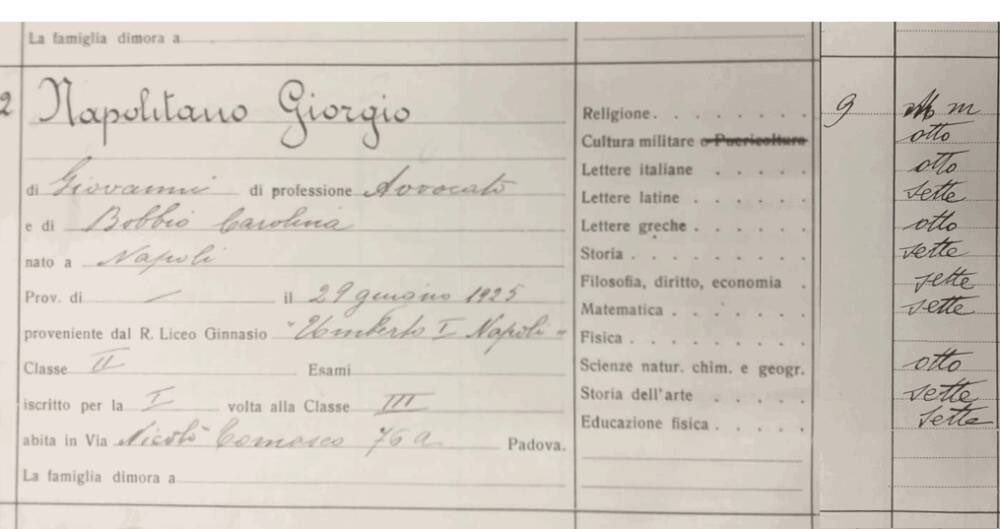 La famiglia dimora a
2 Napolitano Giorgio
di Giovanni di professione Avvocato
e di Bobbio Carolina
nato a Napoli
Prov. di / il 29 giugno 1925
proveniente dal R. Liceo Ginnasio "Umberto I Napoli"
Classe II Esami
iscritto per la I volta alla Classe III
abita in Via Nicolò Comasco 76 a Padova.
La famiglia dimora a
Religione 9 m
Cultura militare o Puericoltura otto
Lettere italiane otto
Lettere latine sette
Lettere greche otto
Storia sette
Filosofia, diritto, economia sette
Matematica sette
Fisica
Scienze natur. chim. e geogr. otto
Storia dell'arte sette
Educazione fisica sette